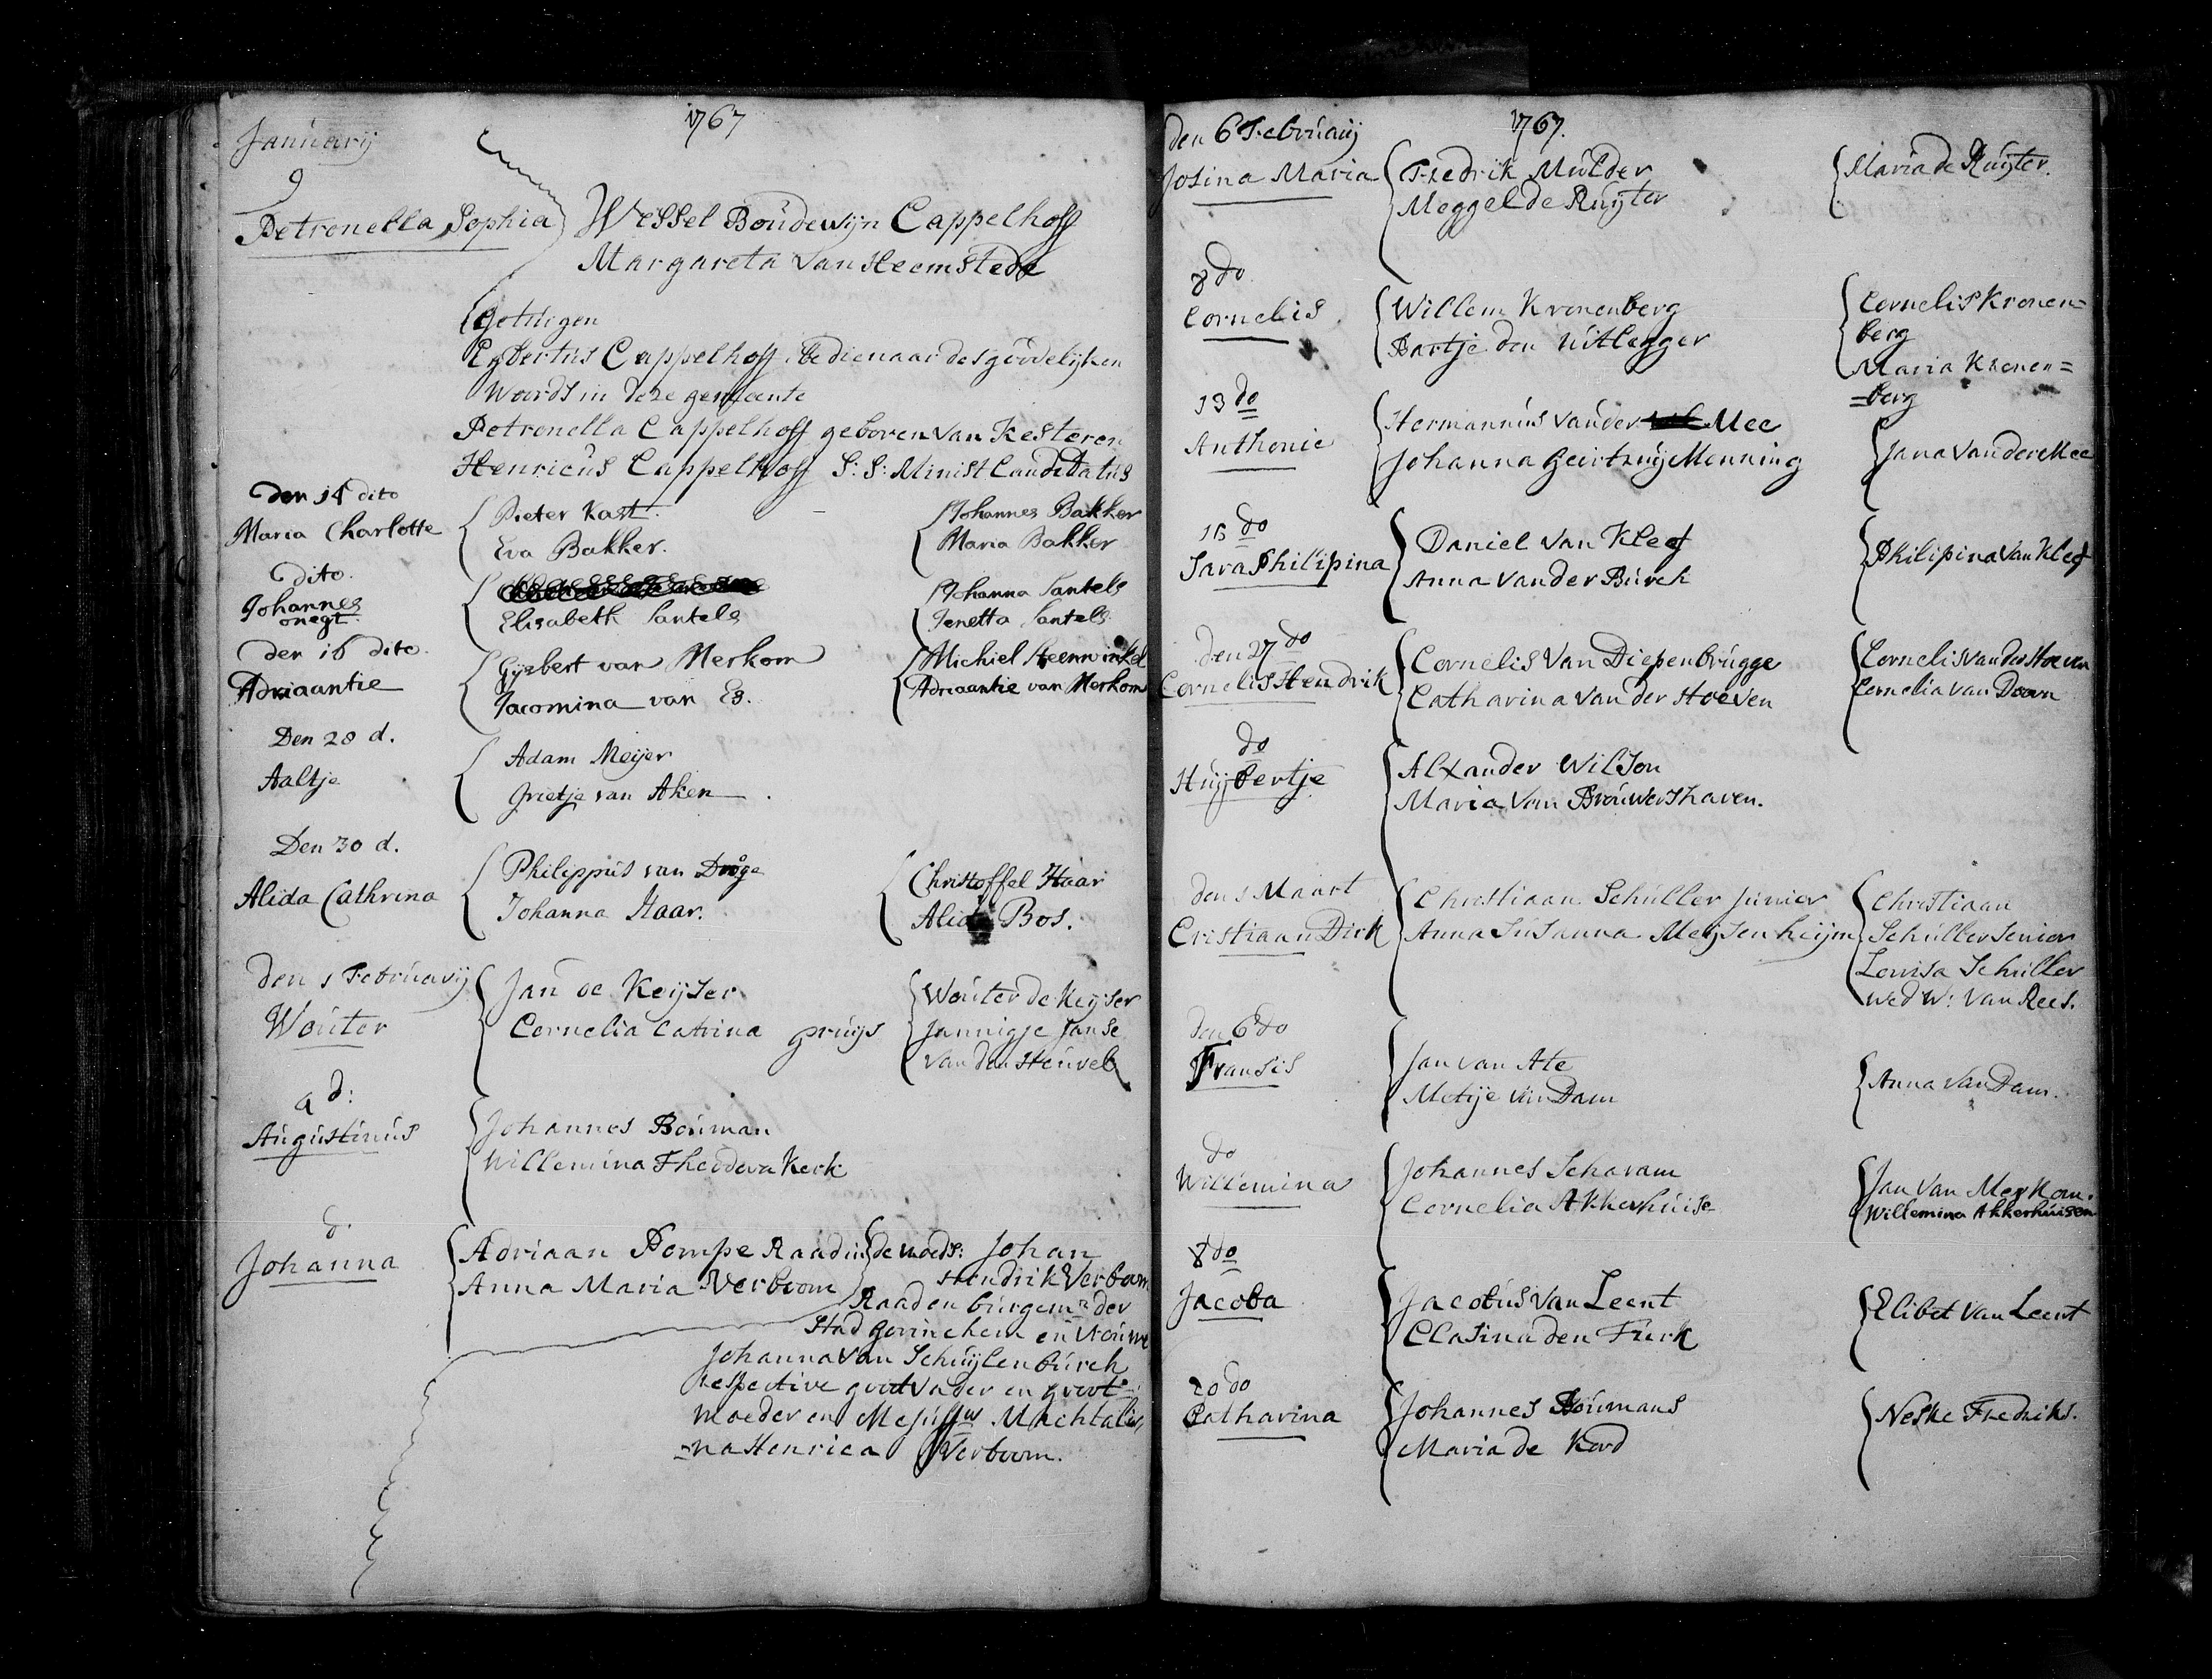 1767
Januarij
9
Petronella Sophia
Wessel Boudewijn Cappelhoff
Margareta van Heemstede
Getuigen
Egbertus Cappelhoff bedienaar des goddelijken
Woords in deze gemeente
Petronella Cappelhoff geboren van Kesteren
Henricus Cappelhoff S: S: Minist Candidatus
Den 14 dito
Maria Charlotte
Pieter Kast.
Eva Bakker.
Johannes Bakker
Maria Bakker
dito.
Johannes
onegt.
Elisabeth Santels
Johanna Santels
Jenetta Santels
den 16 dito.
Adriaantie
Gijsbert van Merkom
Jacomina van Es.
Michiel Steenwinkel
Adriaantie van Merkom
Den 28 d.
Aaltje
Adam Meijer
Grietje van Aken
Den 30 d.
Alida Cathrina
Philippus van Droge
Johanna Haar.
Christoffel Haar
Alida Bos.
den 1 Februarij
Wouter
Jan de Keijser
Cornelia Catrina Pruijs
Wouter de Keijser
Jannigje Janse
van den Heuvel
d:
Augustinus
Johannes Bouman
Willemina Theodora Kerk
d.
Johanna
Adriaan Pompe Raad in de vroeds:
Anna Maria Verboom
Johan
Hendrik Verboom
Raad en burgemr der
Stad gorinchem en vrouwe
Johanna van Schuijlenburch
respective grootvader en groot
moeder en Mejuffw Machtali=
=na Henrica Verboom.
1767.
den 6 Februarij
Josina Maria
Fredrik Mulder
Meggel de Ruijter
Maria de Ruijter.
8 do
Cornelis
Willem Kronenberg
Bartje den uitlegger
Cornelis Kronen=
berg
Maria Kronen=
=berg
13 do
Anthonie
Hermannus van der Mee
Johanna Geertruij Menning
Jana van der Mee
do
Sara Philipina
Daniel van Kleef
Anna van der Burch
Philipina van Kleef
den 27 do
Cornelis Hendrik
Cornelis van Diepenbrugge
Catharina van der Hoeven
Cornelis van der Hoeven
Cornelia van Doorn
do
Huijbertje
Alxander Wilson
Maria van Brouwershaven.
den 1 Maart
Cristiaan Dirk
Christiaan Schuller junior
Anna Susanna Meijsenheijm
Christiaan
Schuller Senior
Louisa Schuller
wed W: van Rees.
den 6 do
Fransis
Jan van Ate
Metije van Dam
Anna van Dam.
do
Willemina
Johannes Scharam
Cornelia Akkerhuise
Jan van Merkom.
Willemina Akkerhuisen
8 do
Jacoba
Jacobus van Leent
Clasina den Turk
Elibet van Leent
20 do
Catharina
Johannes Boumans
Maria de Kord
Neske Fredriks.